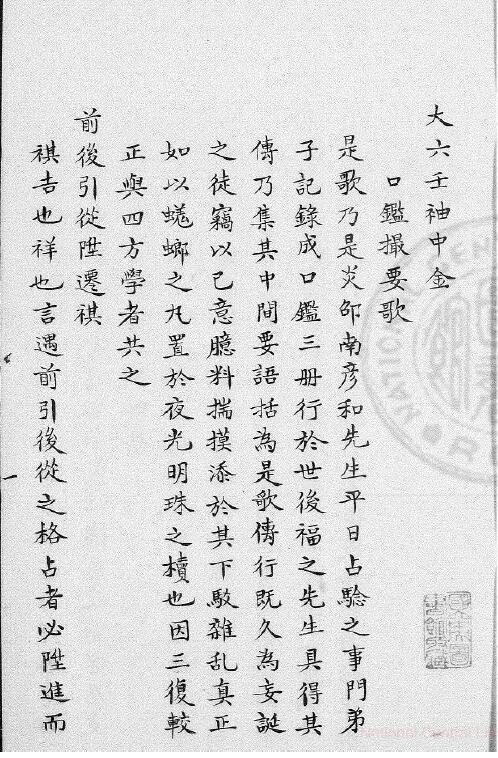 大六壬袖中金
口鑑撮要歌
是歌乃是炎邵南彦和先生平日占驗之事門弟
子記錄成口鑑三册行於世後福之先生具得其
傳乃集其中間要語括為是歌傳行既久為妄誕
之徒竊以己意臆料揣摸添於其下駁雜乱真正
如以蜣蜋之丸置於夜光明珠之櫝也因三復較
正與四方學者共之
前後引從陞遷祺
祺吉也祥也言遇前引後從之格占者必陞進而